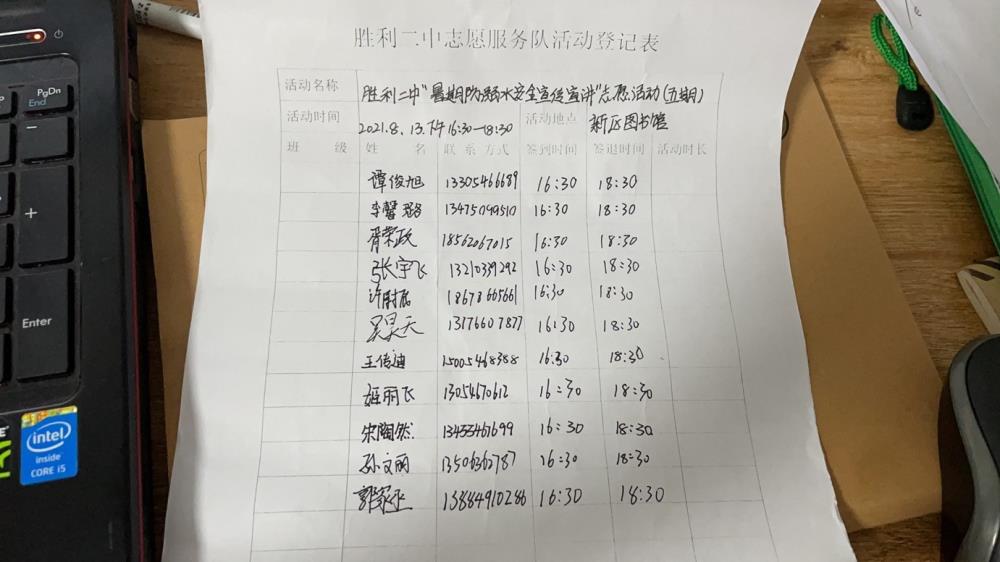 胜利二中志愿服务队活动登记表
活动名称 胜利二中"暑期防溺水安全宣传宣讲"志愿活动(五期)
活动时间 2021.8.13.下午16:30—18:30 活动地点 新区图书馆
班 级 姓 名 联系方式 签到时间 签退时间 活动时长
谭俊旭 13305466689 16:30 18:30
李馨璐 13475099510 16:30 18:30
胥荣政 18562067015 16:30 18:30
张宇飞 13210339292 16:30 18:30
18678665661 16:30 18:30
吴昊天 13176607877 16:30 18:30
王传迪 15005468388 16:30 18:30
姬丽飞 13054670612 16:30 18:30
宋陶然 16:30 18:30
孙文丽 16:30 18:30
郭 13884910286 16:30 18:30
PgDn
End
+
Enter
intel
inside
CORE i5